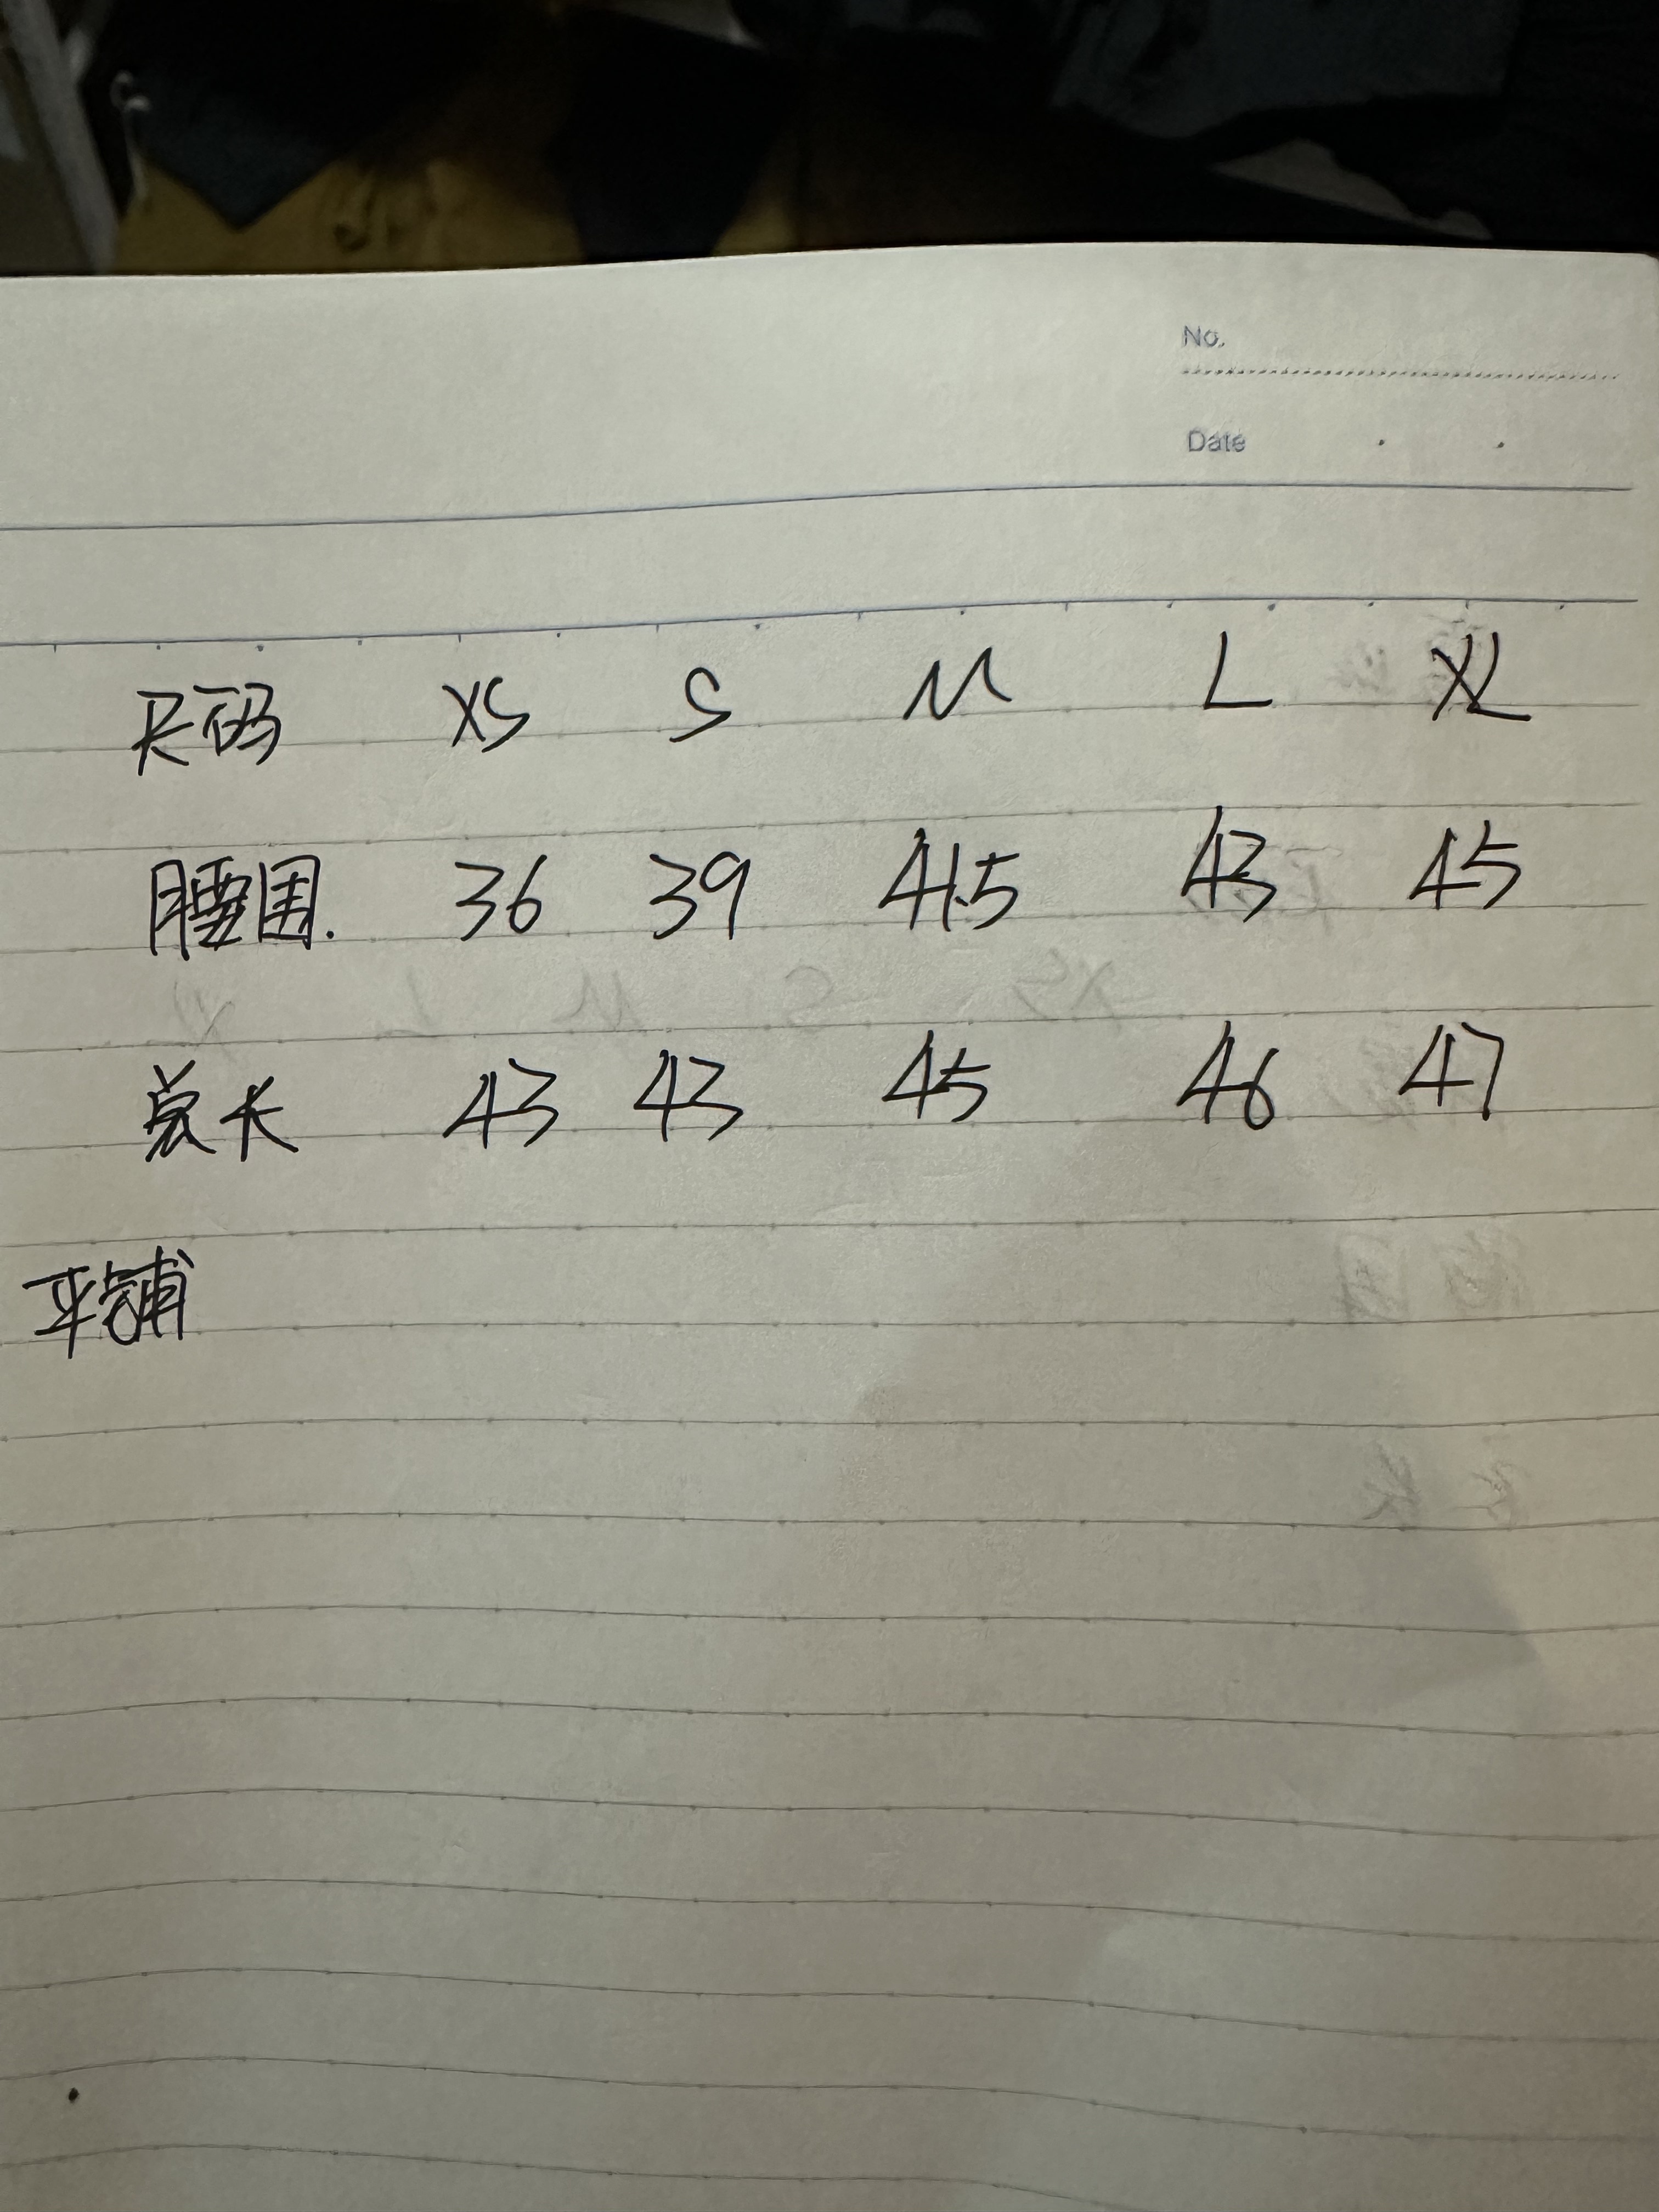 No.
Date
尺码 XS S M L XL
腰围. 36 39 41.5 43 45
总长 43 43 45 46 47
平铺